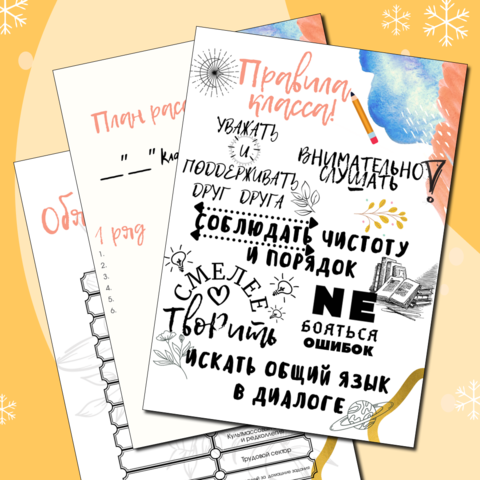 Правила
класса!
УВАЖАТЬ
И
ПОДДЕРЖИВАТЬ
ДРУГ ДРУГА
ВНИМАТЕЛЬНО
СЛУШАТЬ
СОБЛЮДАТЬ ЧИСТОТУ
И ПОРЯДОК
СМЕЛЕЕ
Творить
NE
БОЯТЬСЯ
ОШИБОК
ИСКАТЬ ОБЩИЙ ЯЗЫК
В ДИАЛОГЕ
План расс
__"__" Кла
1 ряд
1.
2.
3.
4.
5.
6.
Обя
и редколлегия
Трудовой сектор